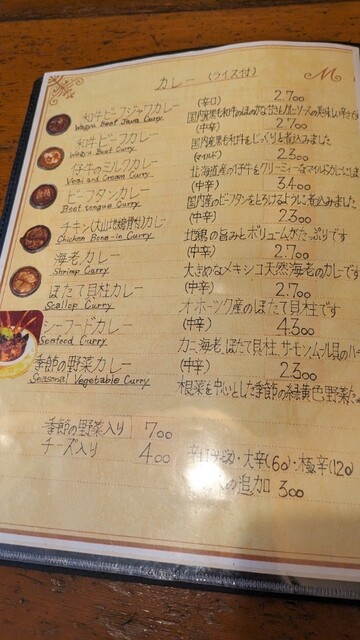 カレー (ライス付)
M
和牛ビーフジャワカレー (辛口) 2.700
Wagyu Beef Jawa Curry
和牛ビーフカレー (中辛) 2.700
Wagyu Beef Curry 国内産黒毛和牛をじっくりと煮込みました
仔牛のミルクカレー (マイルド) 2.300
Veal and Cream Curry
ビーフタンカレー (中辛) 3.400
Beef tongue Curry 国内産のビーフタンをとろけるように煮込みました
チキン(大山地鶏骨付)カレー (中辛) 2.300
Chicken Bone-in Curry 地鶏の旨みとボリュームがたっぷりです
海老カレー (中辛) 2.700
Shrimp Curry 大きめなメキシコ天然海老のカレーです
ほたて貝柱カレー (中辛) 2.700
Scallop Curry オホーツク産のほたて貝柱です
シーフードカレー (中辛) 4.300
Seafood Curry カニ、海老、ほたて貝柱、サーモン、ムール貝の
季節の野菜カレー (中辛) 2.300
Seasonal Vegetable Curry 根菜を中心とした季節の緑黄色野菜
季節の野菜入り 700
チーズ入り 400
大辛(60)・極辛(120
の追加 300